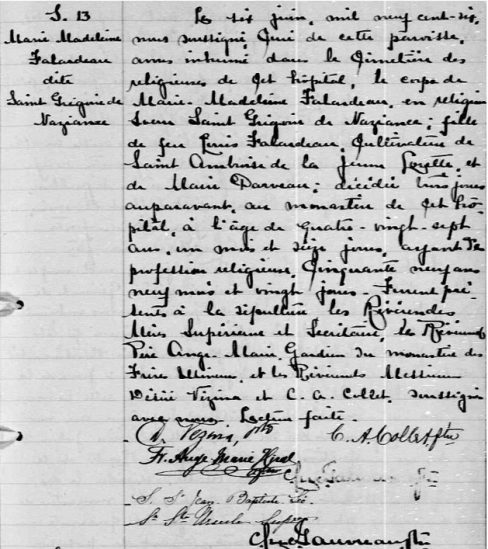 S. 13
Marie Madeleine
Falardeau
dite
Saint Grégoire de
Naziance
Le six juin, mil neuf cent-six,
nous soussigné Curé de cette paroisse,
avons inhumé dans le Cimetière des
religieuses de cet hôpital, le corps de
Marie-Madeleine Falardeau, en religion
Soeur Saint Grégoire de Naziance; fille
de feu Louis Falardeau, Cultivateur de
Saint Ambroise de la Jeune Lorette, et
de Marie Darveau; décédée trois jours
auparavant, au monastère de cet hô-
pital, à l'âge de quatre-vingt-sept
ans, un mois et seize jours, ayant de
profession religieuse, Cinquante neuf ans
neuf mois et vingt jours. Furent pré-
sents à la sépulture les Révérendes
Mères Supérieure et Secrétaire, le Révérend
Père Ange-Marie, Gardien du monastère des
Frères Mineurs, et les Révérends Messieurs
Désiré Vézina et C. A. Collet, soussignés
avec nous. Lecture faite.
D. Vézina, ptre
C. A. Collet ptre
Fr. Ange-Marie
S. St Jean Baptiste
Sr Ste Ursule